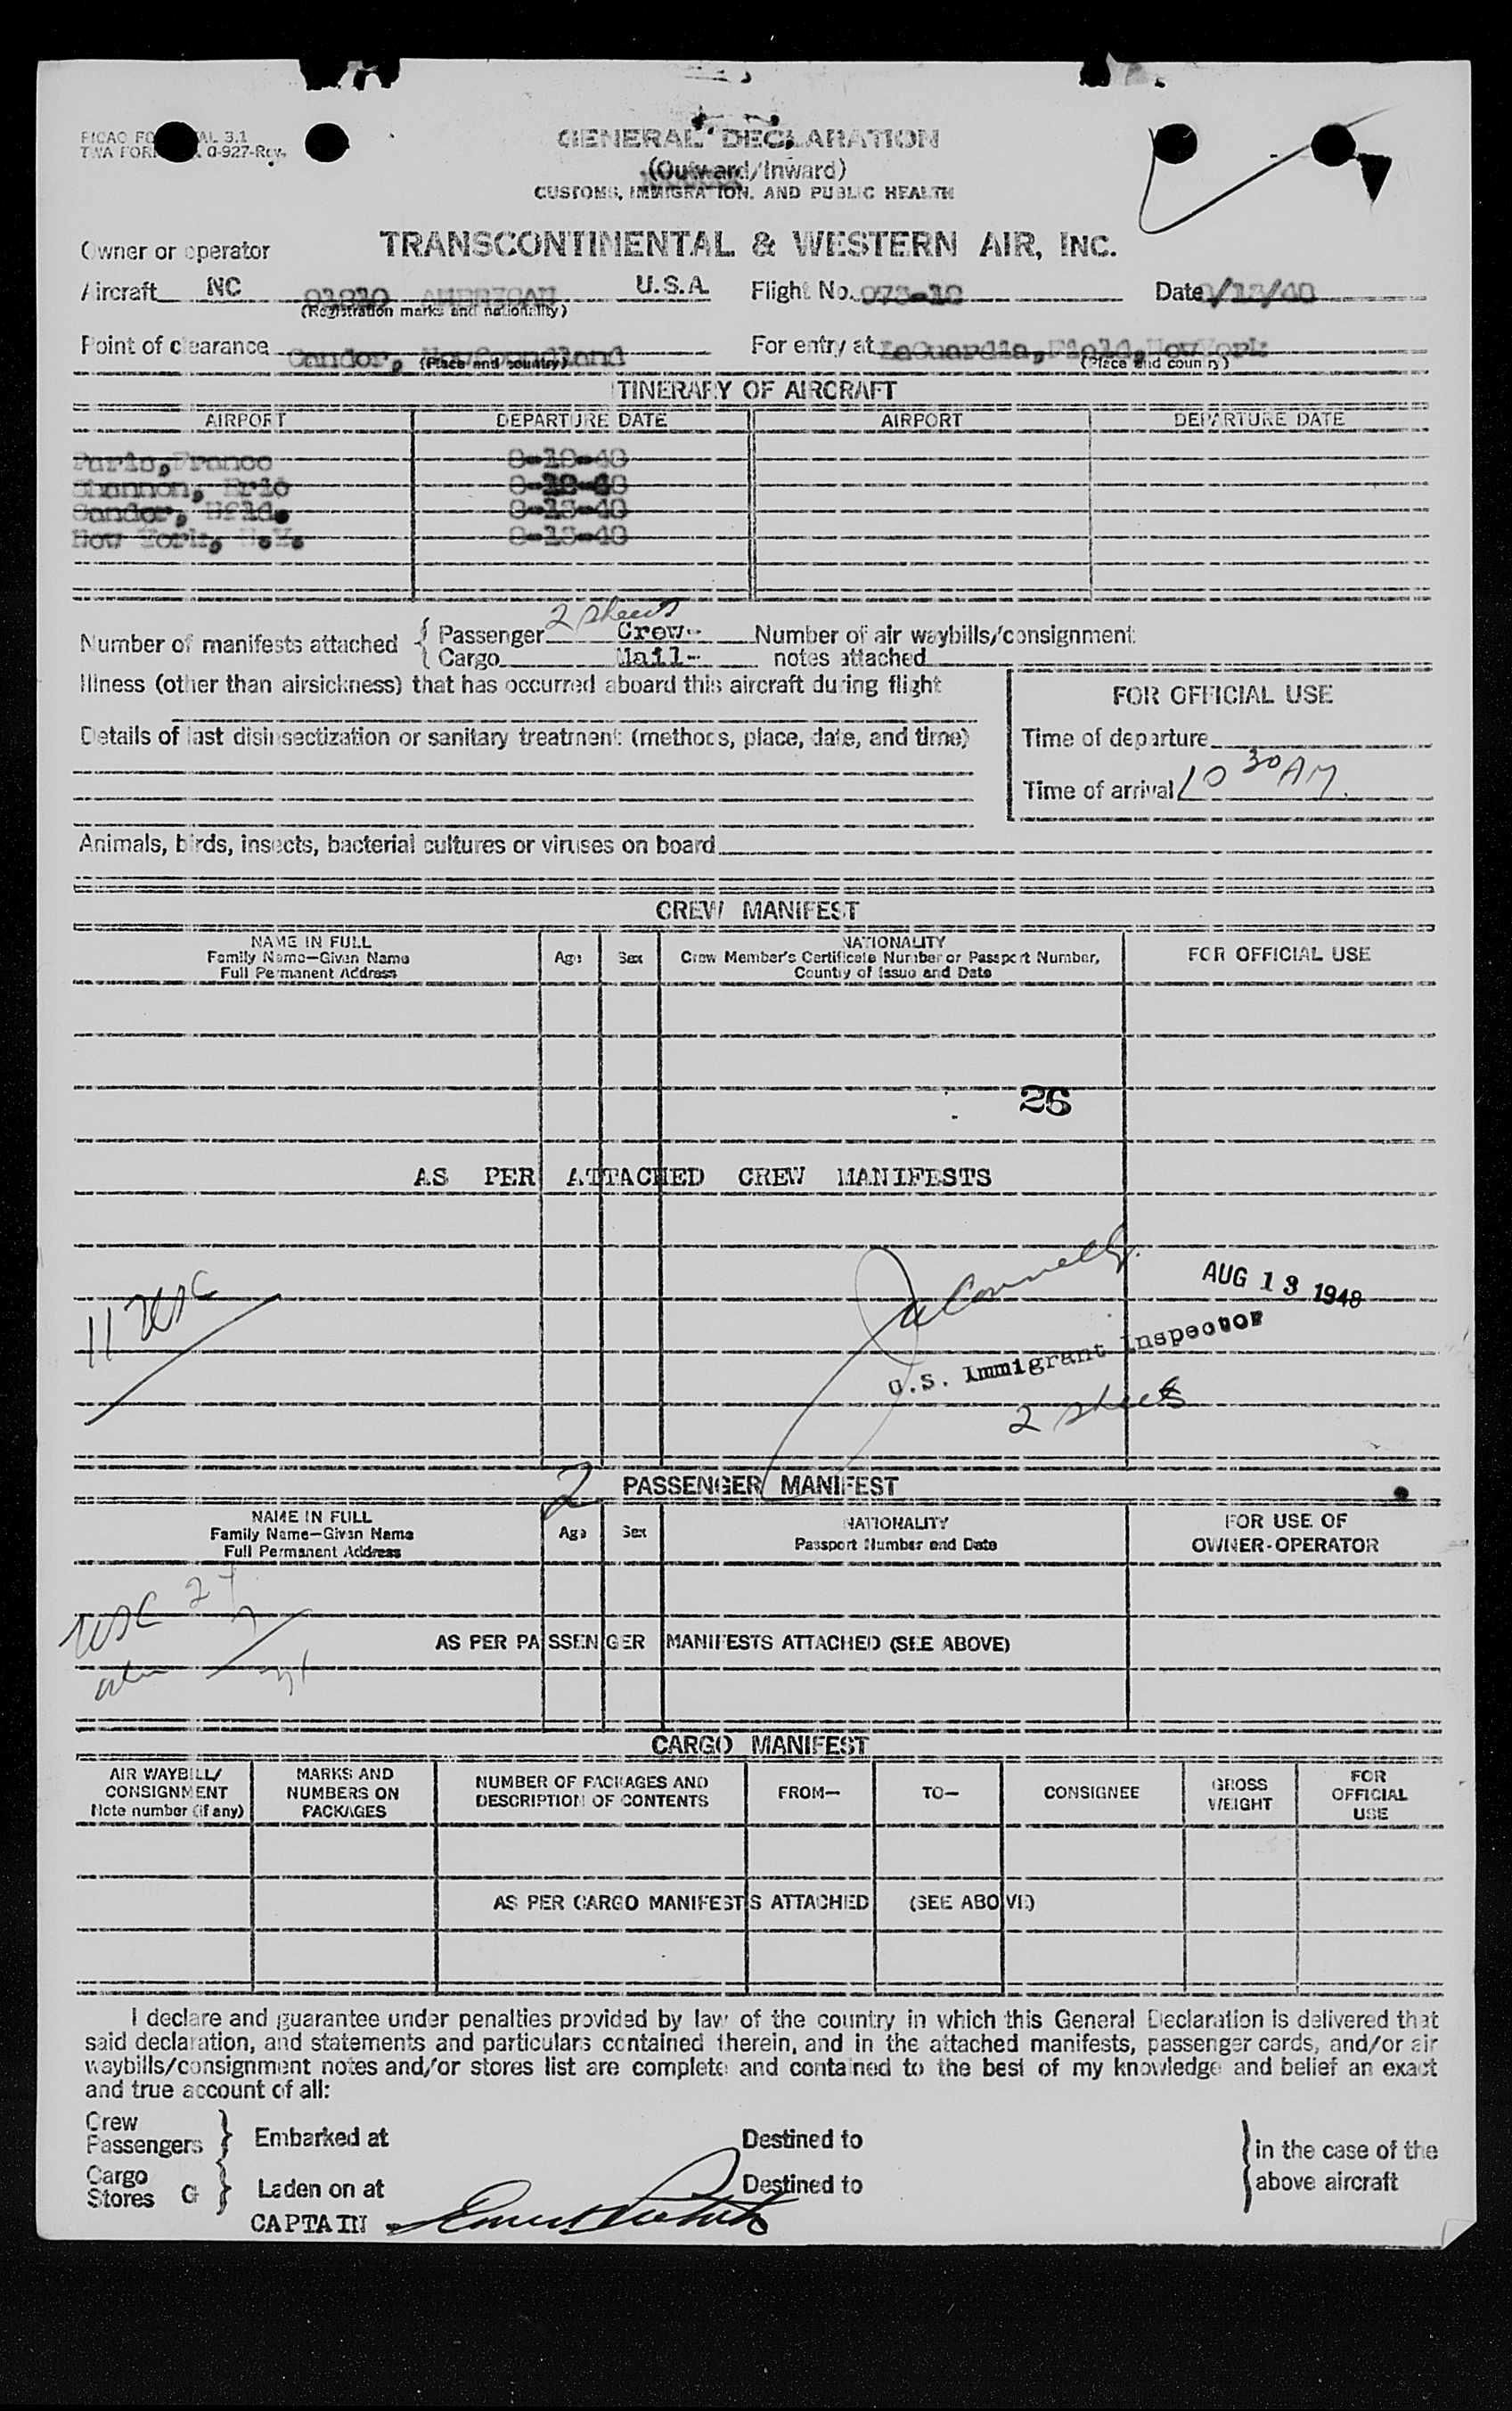 GENERAL DECLARATION
(Outward/Inward)
CUSTOMS, IMMIGRATION, AND PUBLIC HEALTH
TWA FORM 0-927-Rev.
Owner or operator TRANSCONTINENTAL & WESTERN AIR, INC.
Aircraft NC 91810 AMERICAN U.S.A. Flight No. Date
(Registration marks and nationality)
Point of clearance Gander, Newfoundland For entry at LaGuardia, Field, New York
(Place and country) (Place and country)
ITINERARY OF AIRCRAFT
AIRPORT DEPARTURE DATE AIRPORT DEPARTURE DATE
Paris, France
Shannon, Erie
Gander, Nfld.
New York, N.Y.
2 sheets
Number of manifests attached { Passenger Crew- Number of air waybills/consignment
Cargo Mail- notes attached
Illness (other than airsickness) that has occurred aboard this aircraft during flight
FOR OFFICIAL USE
Details of last disinsectization or sanitary treatment (methods, place, date, and time)
Time of departure
Time of arrival 10 30 AM.
Animals, birds, insects, bacterial cultures or viruses on board
CREW MANIFEST
NAME IN FULL
Family Name—Given Name
Full Permanent Address
Age Sex
NATIONALITY
Crew Member's Certificate Number or Passport Number,
Country of Issue and Date
FOR OFFICIAL USE
26
AS PER ATTACHED CREW MANIFESTS
11 USC
AUG 13 1948
U.S. Immigrant Inspector
2 sheets
2
PASSENGER MANIFEST
NAME IN FULL
Family Name—Given Name
Full Permanent Address
Age Sex
NATIONALITY
Passport Number and Date
FOR USE OF
OWNER-OPERATOR
USC
AS PER PASSENGER MANIFESTS ATTACHED (SEE ABOVE)
CARGO MANIFEST
AIR WAYBILL/
CONSIGNMENT
Note number (if any)
MARKS AND
NUMBERS ON
PACKAGES
NUMBER OF PACKAGES AND
DESCRIPTION OF CONTENTS
FROM— TO— CONSIGNEE
GROSS
WEIGHT
FOR
OFFICIAL
USE
AS PER CARGO MANIFESTS ATTACHED (SEE ABOVE)
I declare and guarantee under penalties provided by law of the country in which this General Declaration is delivered that
said declaration, and statements and particulars contained therein, and in the attached manifests, passenger cards, and/or air
waybills/consignment notes and/or stores list are complete and contained to the best of my knowledge and belief an exact
and true account of all:
Crew
Passengers } Embarked at Destined to } in the case of the
Cargo
Stores G } Laden on at Destined to above aircraft
CAPTAIN